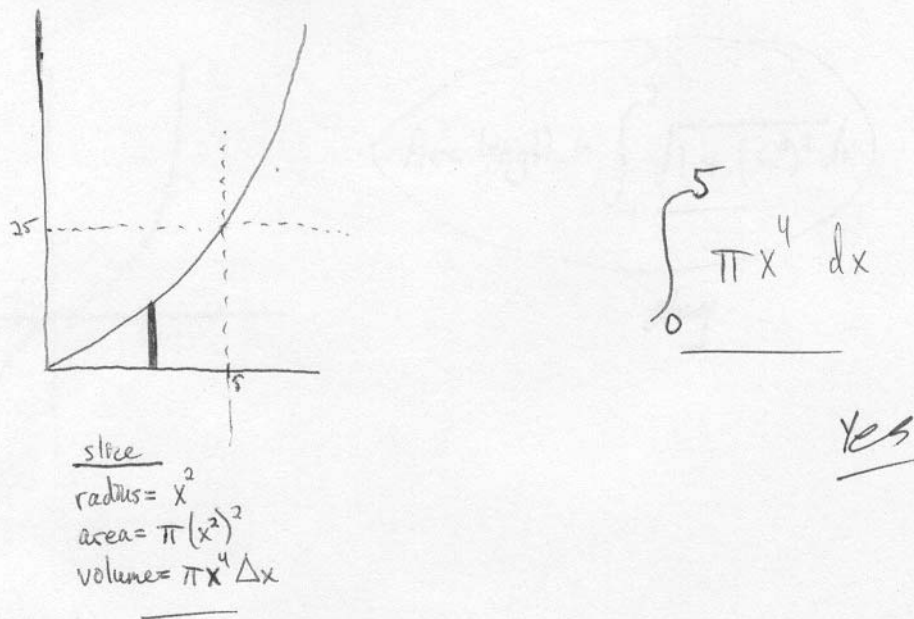 25
5
slice
radius = x²
area = π(x²)²
volume = πx⁴ Δx
∫₀⁵ πx⁴ dx
Yes